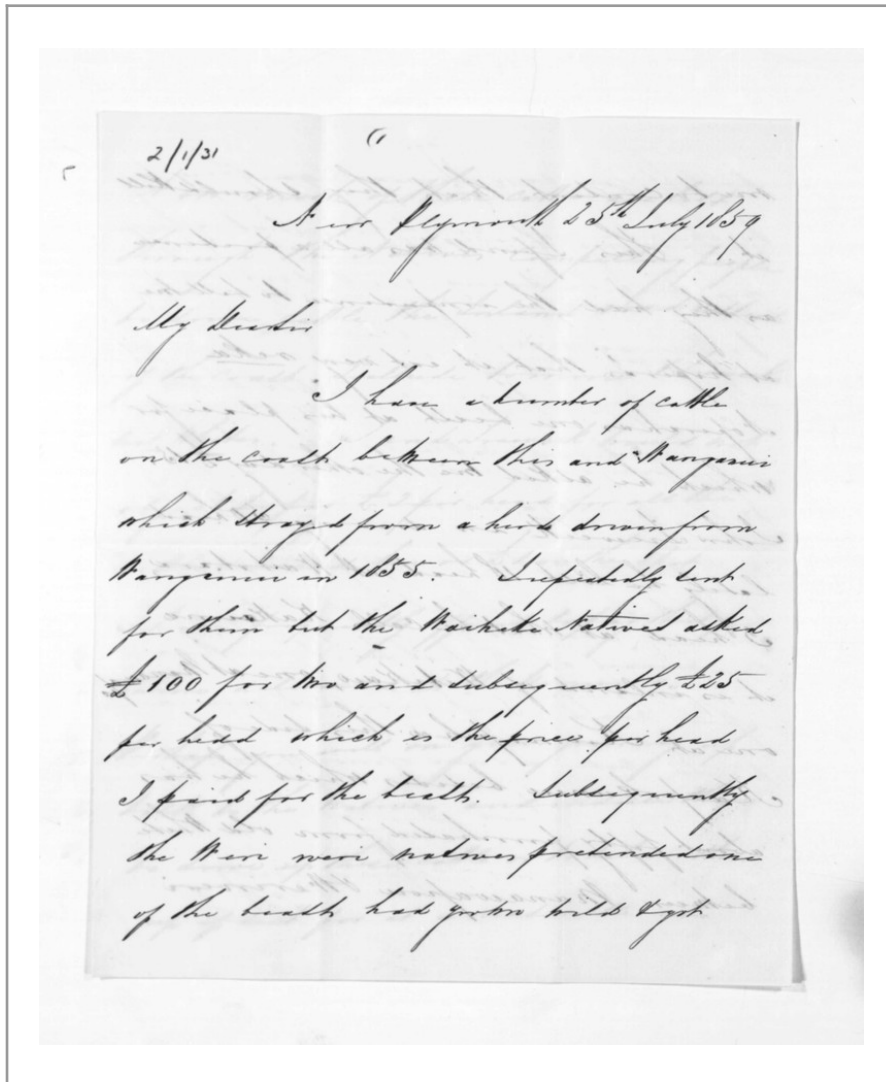 2/1/31
New Plymouth 25th July 1859
My Dear Sir
I have a number of cattle
on the coast between this and Wanganui
which strayed from a herd driven from
Wanganui in 1855. I repeatedly sent
for them but the Natives asked
£100 for two and subsequently £25
per head which is the price per head
I paid for the beasts. Subsequently
the Weri weri natives pretended one
of the beasts had grown wild & got